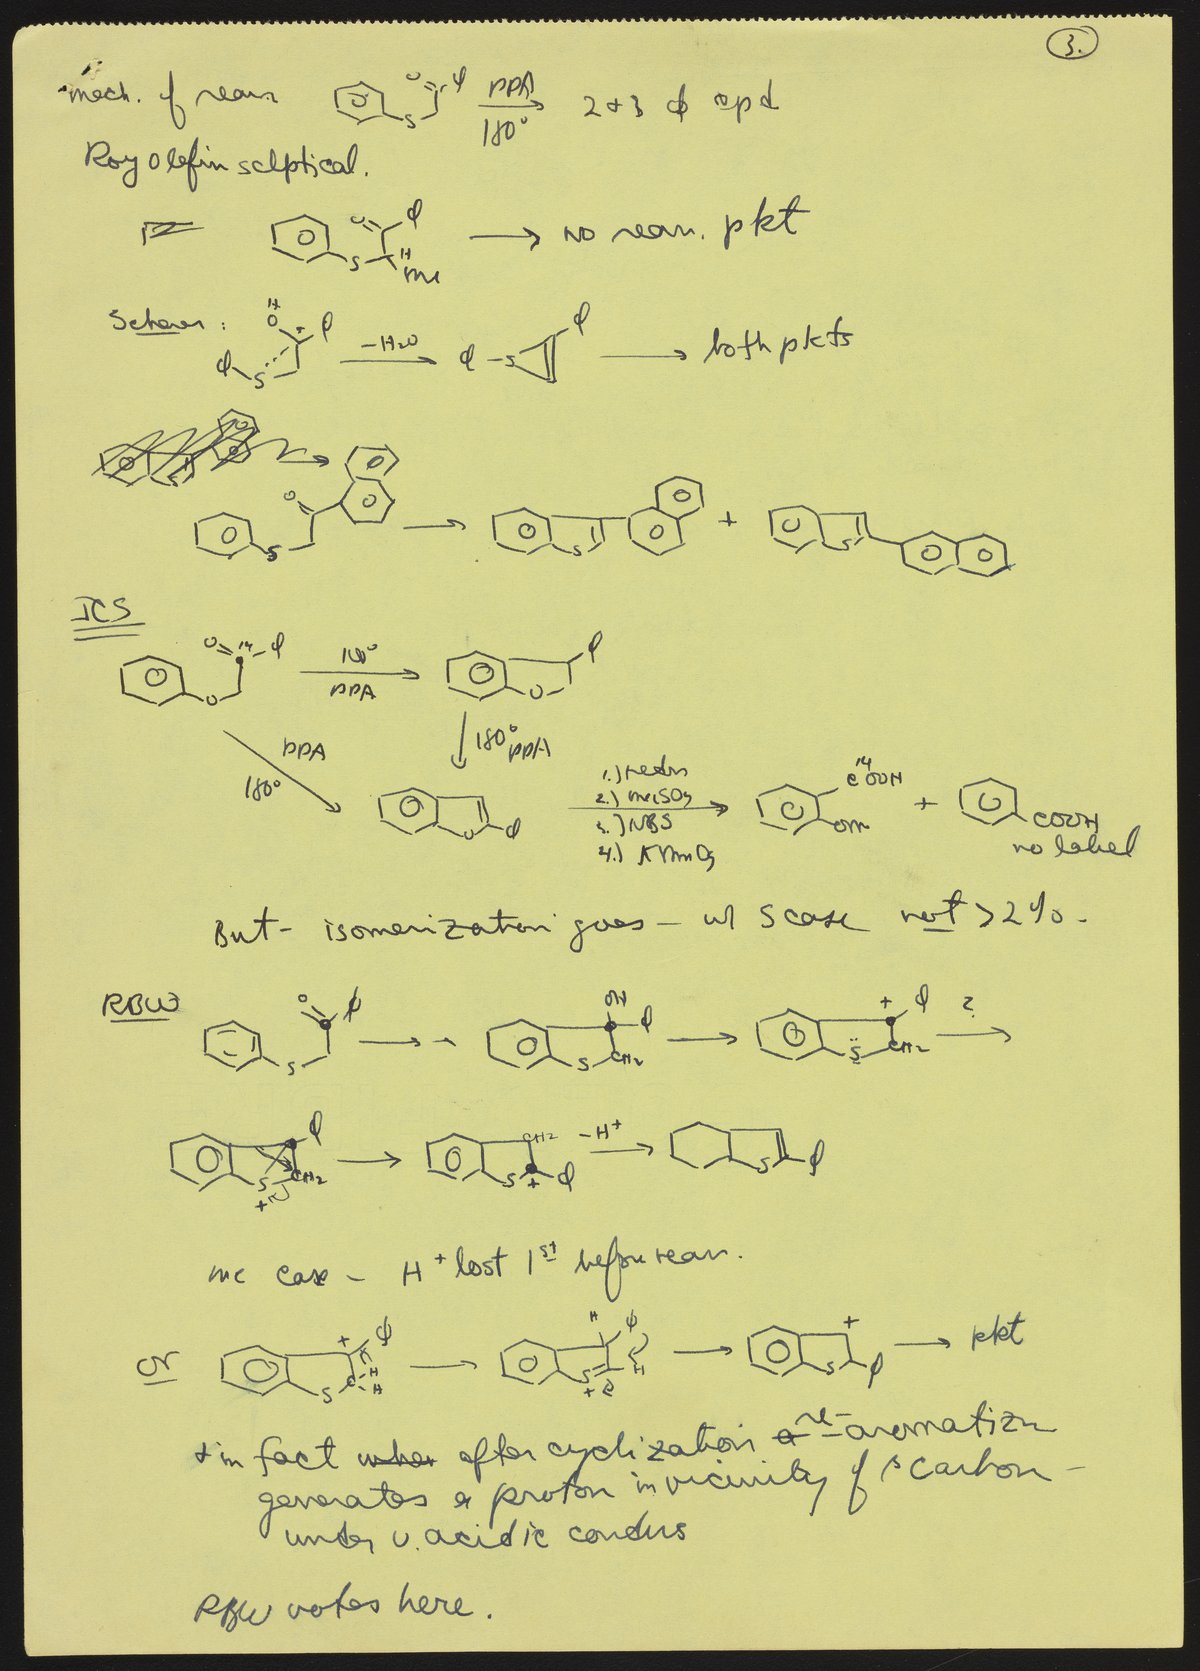 3.
mech. of rearr. O φ S PPA 180° 2 + 3 φ cpd
Roy Olefin sceptical.
O φ S H Me → no rearr. pkt
H+ O + φ
φ S -H2O → φ - S φ → both pkts
O S → S + S
JCS
O 14 φ O 160° PPA → φ O
PPA 180° 180° PPA
O φ 1.) redn 2.) Me2SO4 3.) NBS 4.) KMnO4 → 14 COOH OMe + COOH no label
But - isomerization goes - w/ S case not > 2%.
RBW O φ S → → OH φ S CH2 → + φ S CH2 ? →
φ S + CH2 → CH2 S + φ -H+ → S φ
me case - H+ lost 1st before rearr.
or + φ S C H H → H φ S + H → + S φ → pkt
+ in fact after cyclization re-aromatizn
generates a proton in vicinity of β carbon -
under v. acidic condns
RBW votes here.